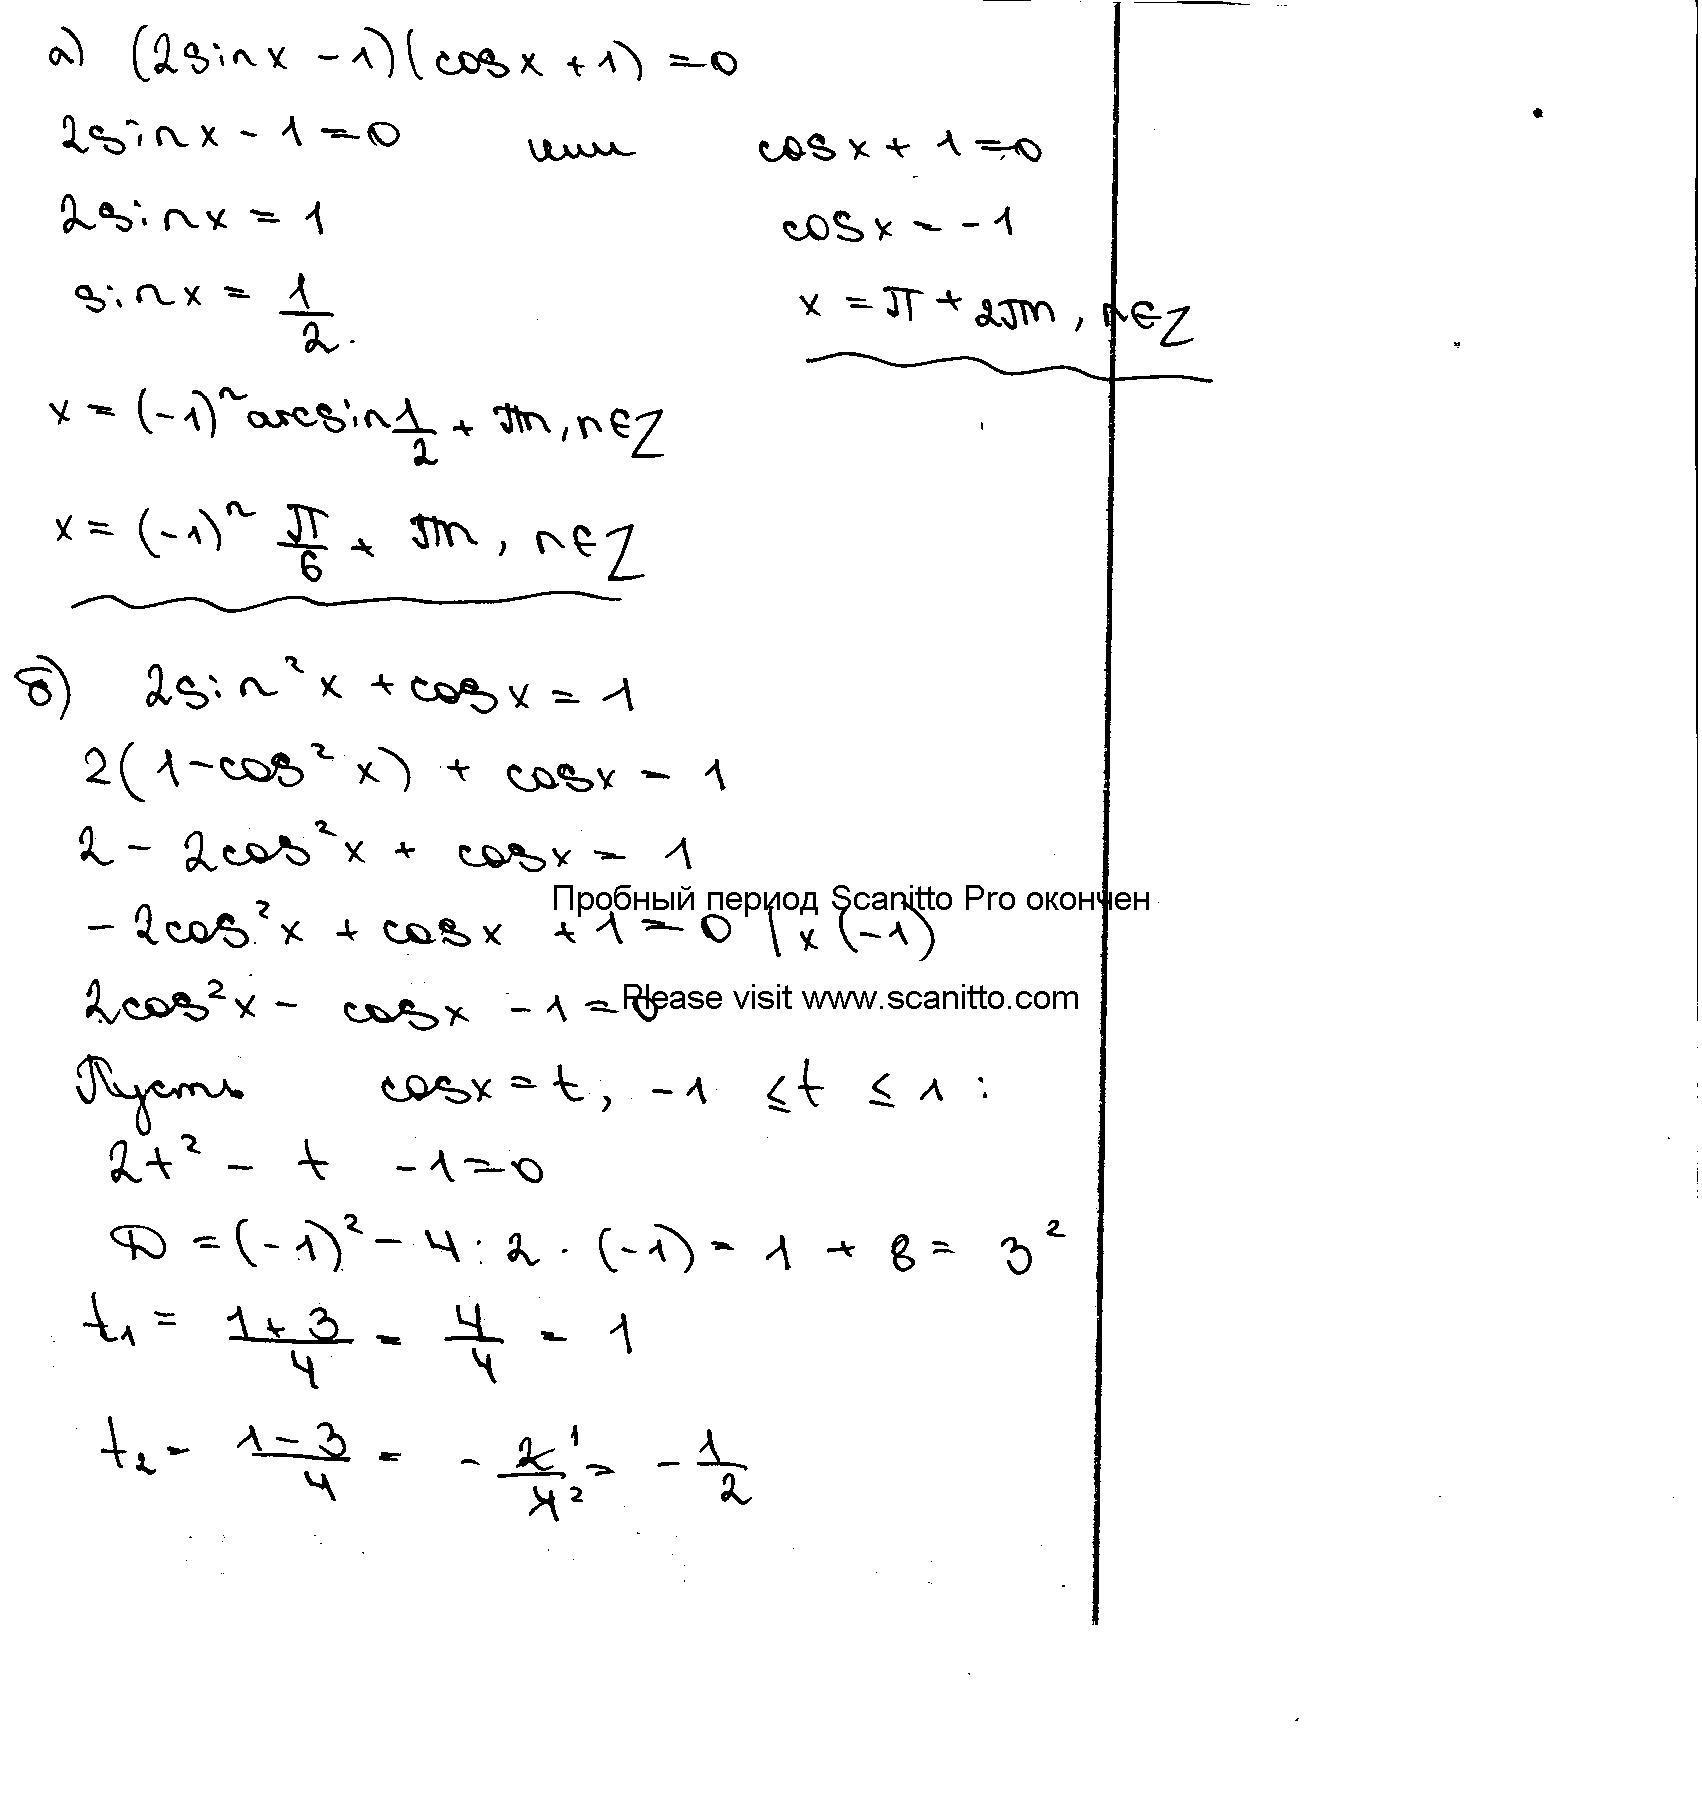 а) (2sinx - 1)(cosx + 1) = 0
2sinx - 1 = 0 или cosx + 1 = 0
2sinx = 1 cosx = -1
sinx = 1/2 x = π + 2πn, n∈Z
x = (-1)ⁿ arcsin 1/2 + πn, n∈Z
x = (-1)ⁿ π/6 + πn, n∈Z
б) 2sin²x + cosx = 1
2(1 - cos²x) + cosx = 1
2 - 2cos²x + cosx = 1
Пробный период Scanitto Pro окончен
-2cos²x + cosx + 1 = 0 | x (-1)
2cos²x - cosx - 1 = 0
Please visit www.scanitto.com
Пусть cosx = t, -1 ≤ t ≤ 1 :
2t² - t - 1 = 0
D = (-1)² - 4 · 2 · (-1) = 1 + 8 = 3²
t₁ = (1+3)/4 = 4/4 = 1
t₂ = (1-3)/4 = - 2¹/4² = - 1/2